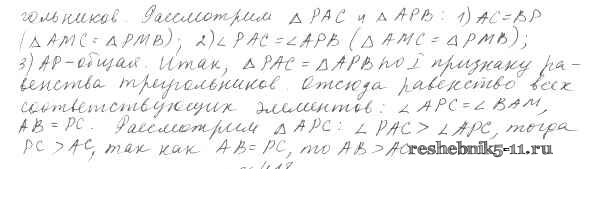 гольников. Рассмотрим △ PAC и △ APB: 1) AC = BP
(△ AMC = △ PMB); 2) ∠ PAC = ∠ APB (△ AMC = △ PMB);
3) AP - общая. Итак, △ PAC = △ APB по I признаку ра-
венства треугольников. Отсюда равенство всех
соответствующих элементов: ∠ APC = ∠ BAM,
AB = PC. Рассмотрим △ APC: ∠ PAC > ∠ APC, тогда
PC > AC, так как AB = PC, то AB > AC
reshebnik5-11.ru